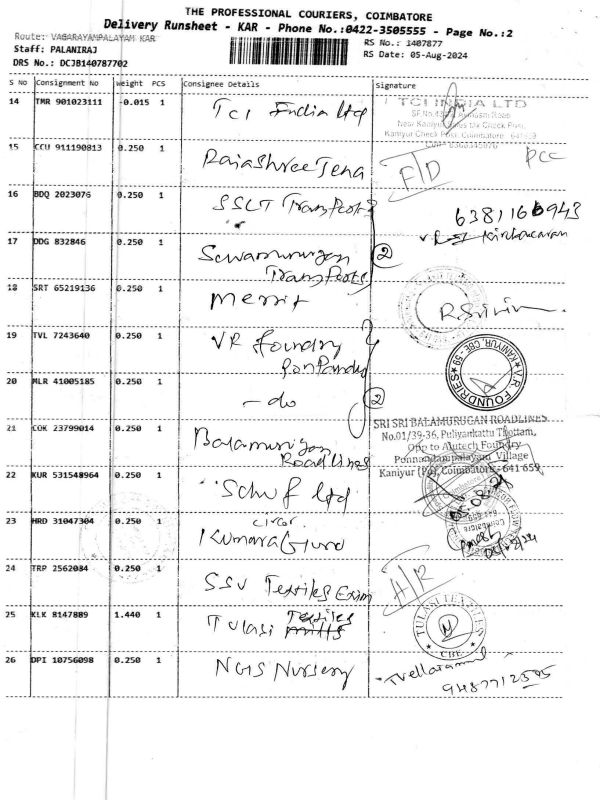 THE PROFESSIONAL COURIERS, COIMBATORE
Delivery Runsheet - KAR - Phone No.:0422-3505555 - Page No.:2
Route: VAGARAYAMPALAYAM KAR
RS No.: 1407877
Staff: PALANIRAJ
RS Date: 05-Aug-2024
DRS No.: DCJB140787702
S No Consignment No weight PCS Consignee Details Signature
14 TMR 901023111 -0.015 1 TCI India Ltd
TCI INDIA LTD
15 CCU 911190813 0.250 1 Rajashree Jena F/D PCC
16 BDQ 2023076 0.250 1 SSLT Transports
6381166943
17 DDG 832846 0.250 1 Selvamurugan Transports 2
18 SRT 65219136 0.250 1 Merrit
19 TVL 7243640 0.250 1 VR Foundry
V.R. FOUNDRIES KANIYUR, CBE - 59
20 MLR 41005185 0.250 1 - do 2
21 COK 23799014 0.250 1 Balamurugan Roadlines
SRI SRI BALAMURUGAN ROADLINES
No.01/39-36, Puliyankattu Thottam,
Opp to Alutech Foundry
Ponnandampalayam Village
Kaniyur (Po), Coimbatore - 641 659
22 KUR 531548964 0.250 1 Schuf Ltd
23 HRD 31047304 0.250 1 Kumaraguru
24 TRP 2562084 0.250 1 SSV Textiles Exim A/R
25 KLK 8147889 1.440 1 Tulasi Textiles
TULASI TEXTILES CBE
26 DPI 10756098 0.250 1 NGS Nursery
9487712505